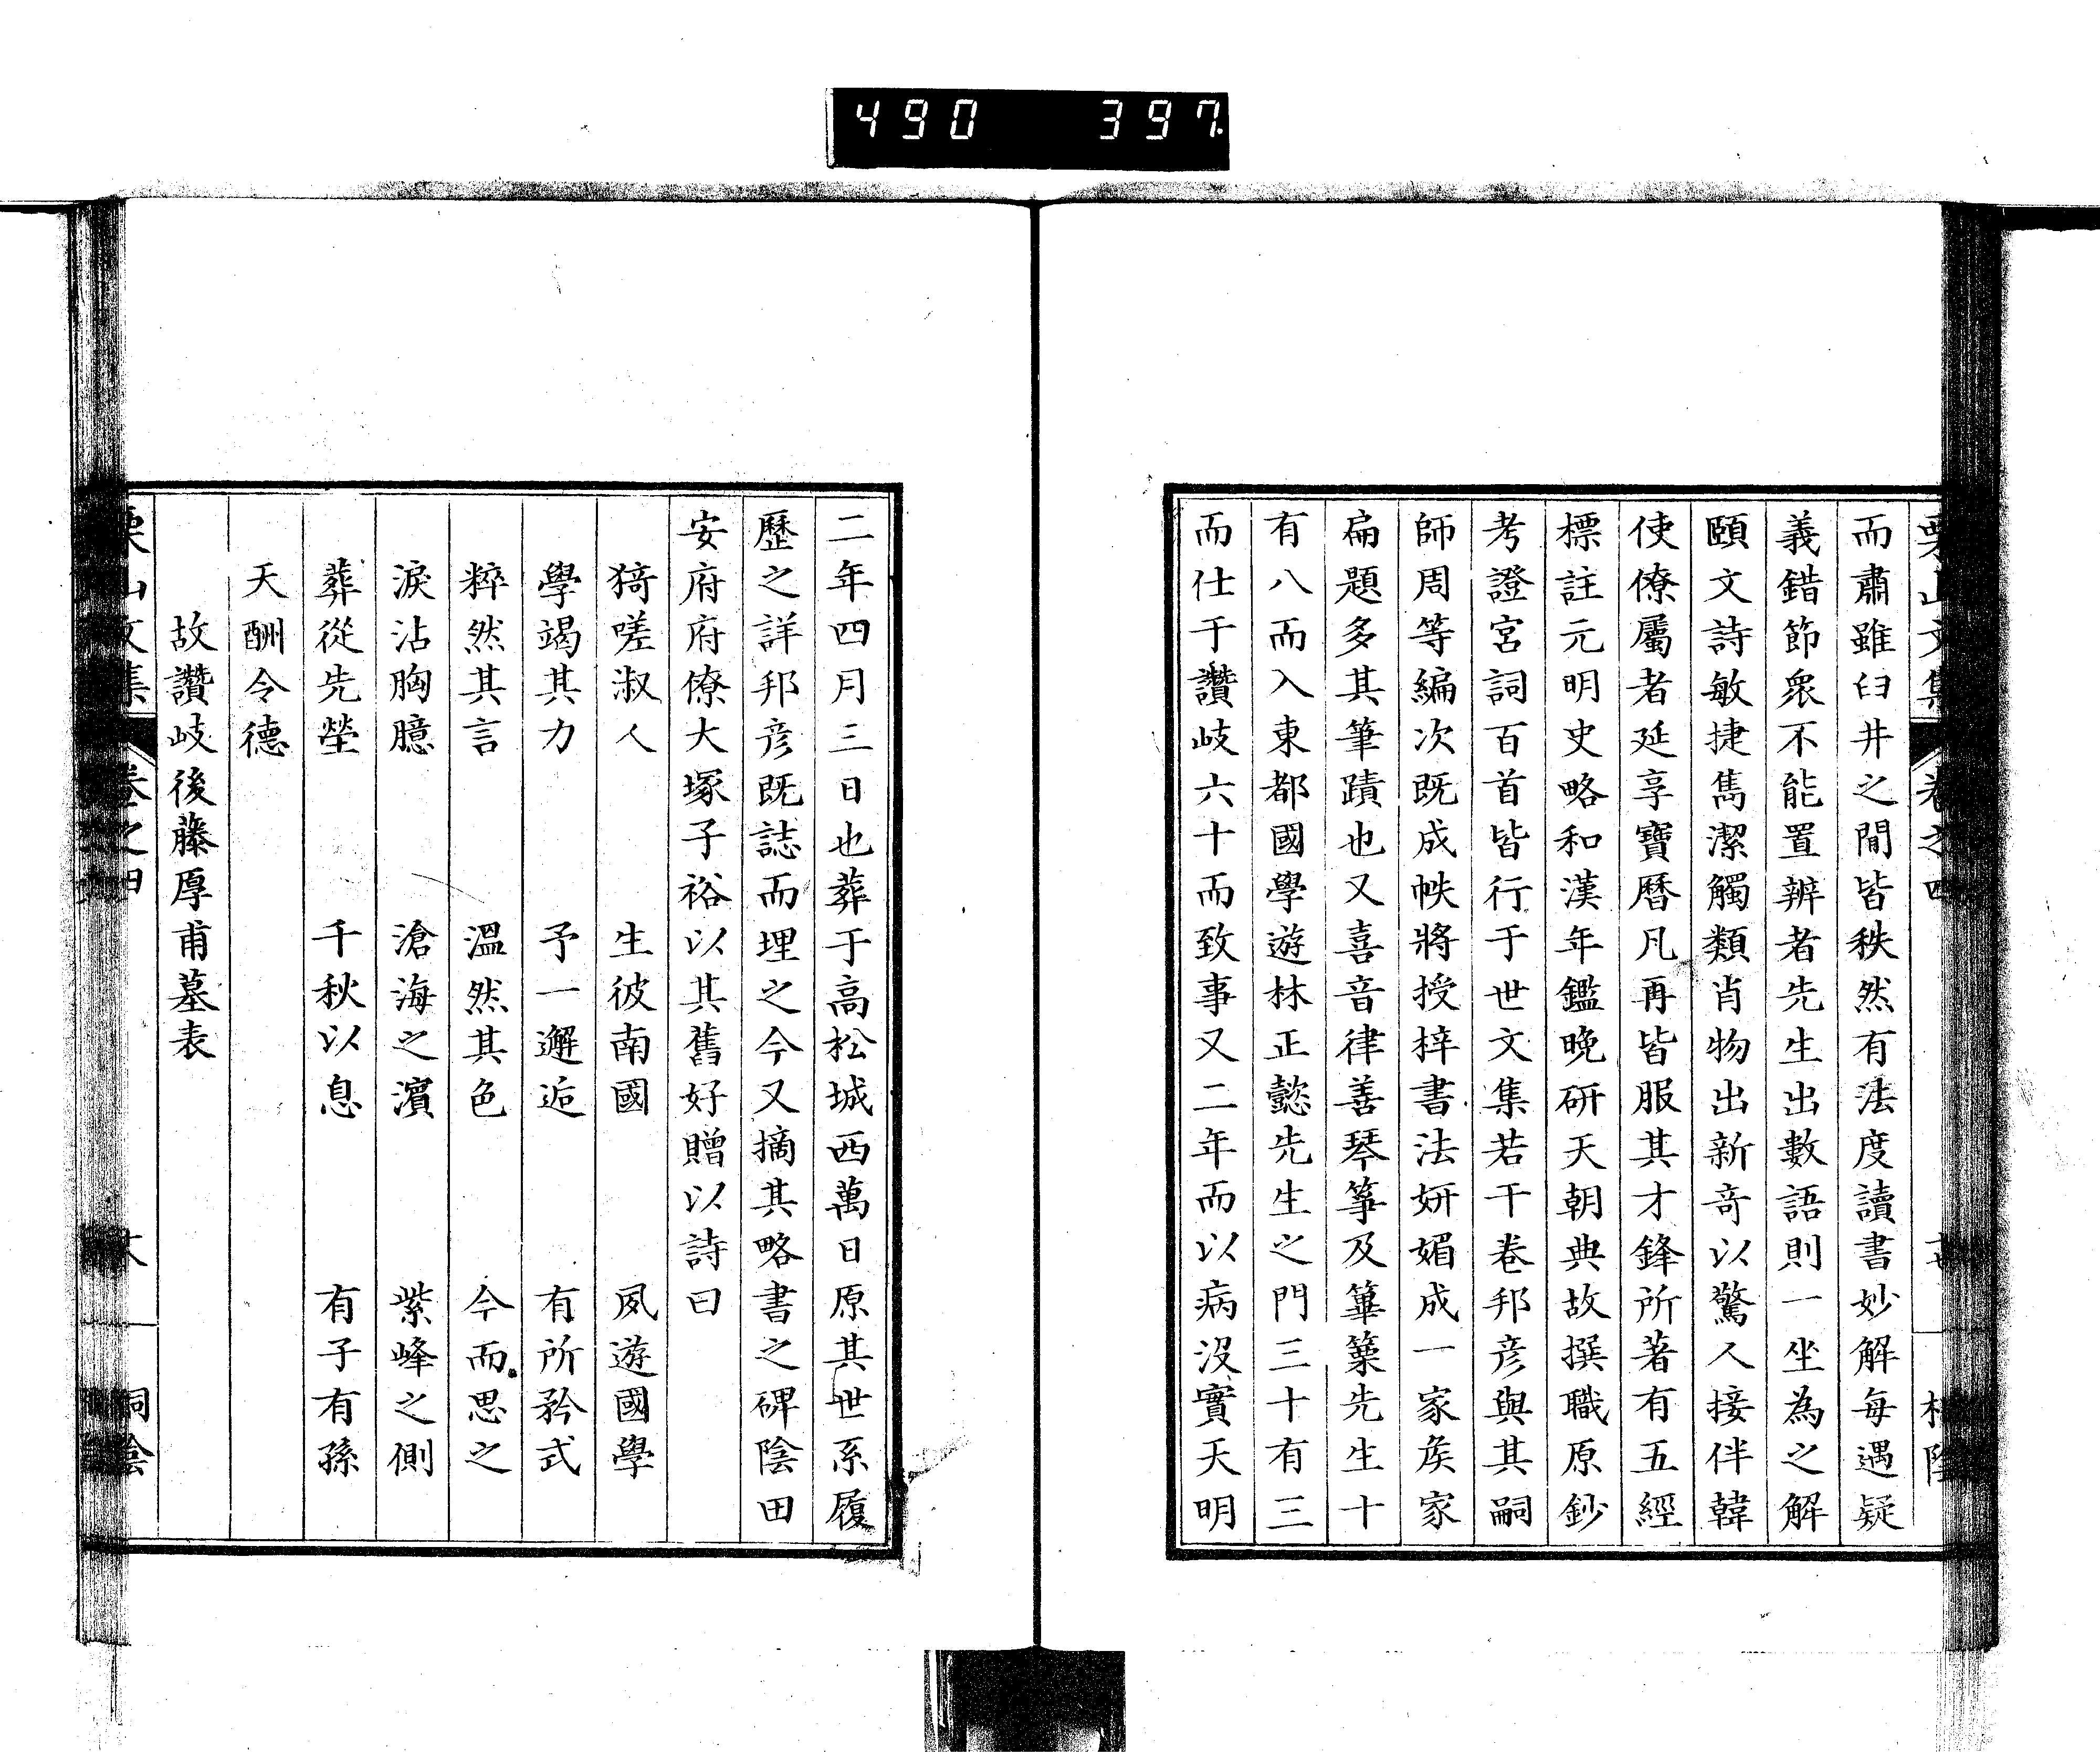 490 397
栗山文集 卷之四
而肅雖臼井之閒皆秩然有法度讀書妙解每遇疑
義錯節衆不能置辨者先生出數語則一坐為之解
頤文詩敏捷雋潔觸類肖物出新奇以驚人接伴韓
使僚屬者延享寶曆凡再皆服其才鋒所著有五經
標註元明史略和漢年鑑晩研天朝典故撰職原鈔
考證宮詞百首皆行于世文集若干卷邦彥與其嗣
師周等編次既成帙將授梓書法妍媚成一家矦家
扁題多其筆蹟也又喜音律善琴箏及篳篥先生十
有八而入東都國學遊林正懿先生之門三十有三
而仕于讚岐六十而致事又二年而以病沒實天明
二年四月三日也葬于高松城西萬日原其世系履
歷之詳邦彥既誌而埋之今又摘其略書之碑陰田
安府府僚大塚子裕以其舊好贈以詩曰
猗嗟淑人 生彼南國 夙遊國學
學竭其力 予一邂逅 有所矜式
粹然其言 溫然其色 今而思之
淚沾胸臆 滄海之濱 紫峰之側
葬從先塋 千秋以息 有子有孫
天酬令德
故讚岐後藤厚甫墓表
栗山文集 卷之四